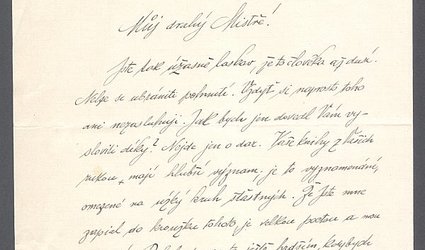 Můj drahý Mistře!
Jste tak úžasně laskav, je to člověka až dusí.
Nelze se ubrániti pohnutí. Vždyť si naprosto toho
ani nezasluhuji. Jak bych jen dovedl Vám vy-
sloviti díky? Nejde jen o dar. Vaše knihy z Vašich
rukou mají hlubší význam, je to vyznamenání,
omezené na úzký kruh šťastných. Že jste mne
zapjal do kroužku tohoto, je velkou poctou a mou